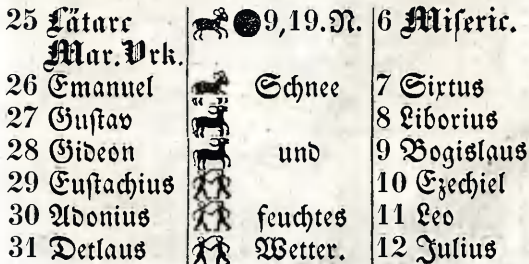 25 Lätare ●9,19.N. 6 Miseric.
Mar.Vrk.
26 Emanuel Schnee 7 Sixtus
27 Gustav 8 Liborius
28 Gideon und 9 Bogislaus
29 Eustachius 10 Ezechiel
30 Adonius feuchtes 11 Leo
31 Detlaus Wetter. 12 Julius